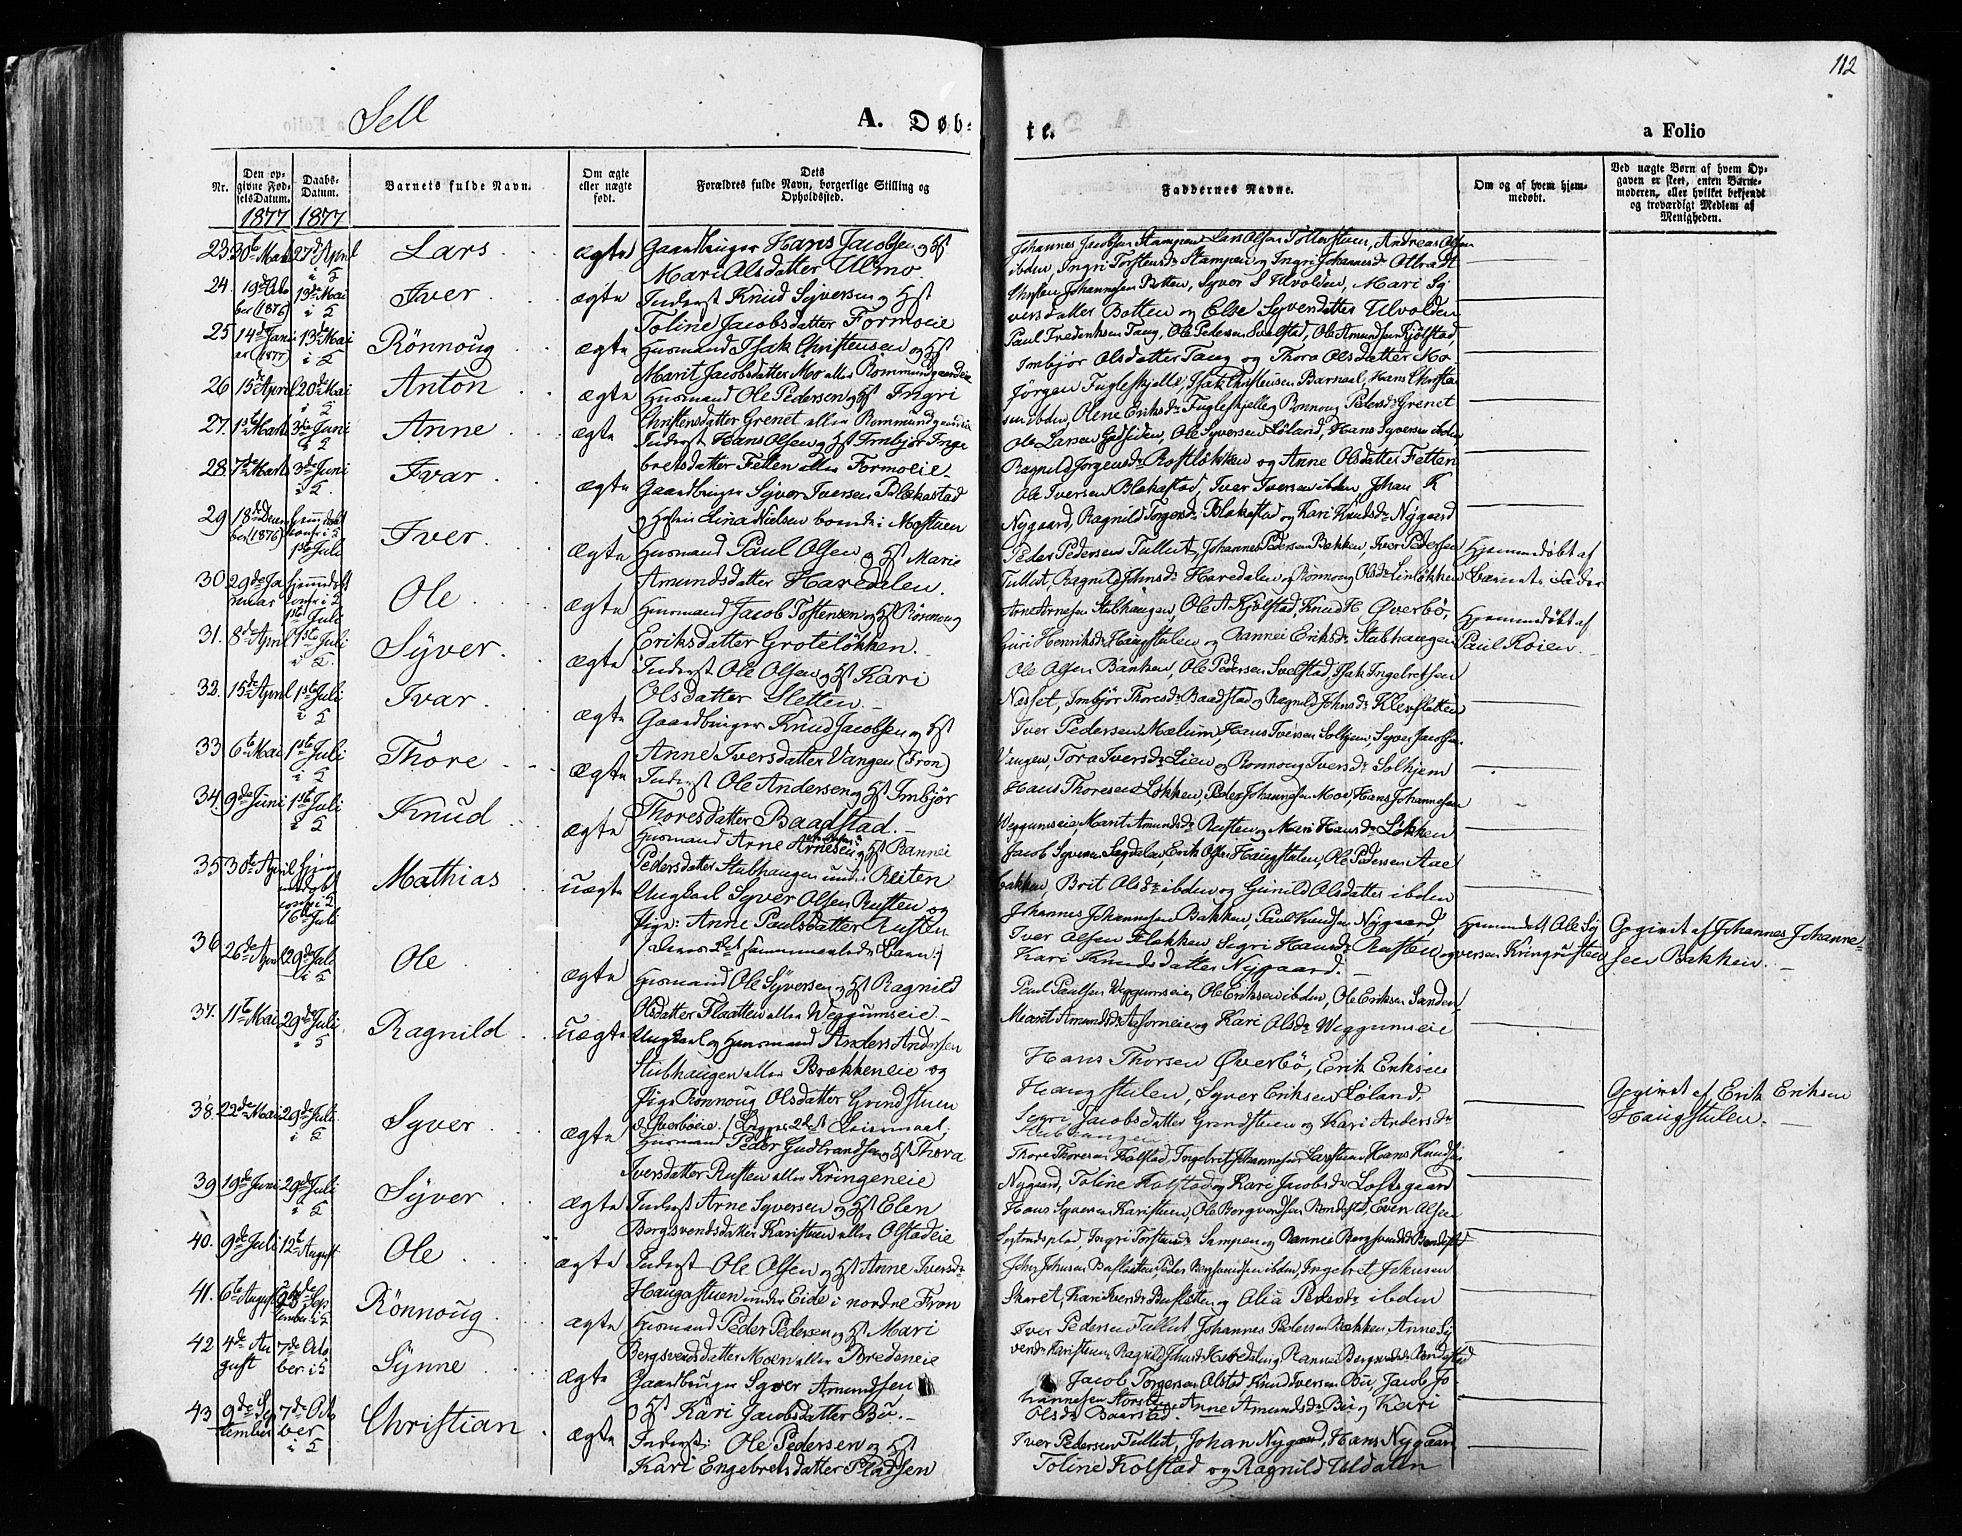 112
Sell
A. Døb=
te.
a Folio
Nr.
Den op-
givne Fød-
sels Datum.
1877
Daabs-
Datum.
1877
Barnets fulde Navn.
Om ægte
eller uægte
født.
Dets
Forældres fulde Navn, borgerlige Stilling og
Opholdssted.
Faddernes Navne.
Om og af hvem hjem-
medøbt.
Ved uægte Børn af hvem Op-
gaven er skeet, enten Barne-
moderen, eller hvilket bekjendt
og troværdigt Medlem af
Menigheden.
23. 30te Marts 27de April i S Lars ægte Gaardbruger Hans Jacobsen og Hst
Mari Olsdatter Ulmo.
Johannes Jacobsen Stampen, Lars Olsen Tollersstuen, Andreas Olsen
ibden, Ingri Torstensdr Stampen og Ingri Johannesdr
24. 19de Octo
ber (1876) 13de Mai i S Iver ægte Inderst Knud Syversen og Hst
Toline Jacobsdatter Formoeie
Christen Johannesen Botten, Syver S Ulvolden, Mari Sy
versdatter Botten og Else Syversdatter Ulvolden
25 14de Janu
ar (1877) 13de Mai i S Rönnoug ægte Husmand Isak Christensen og Hst
Marit Jacobsdatter Mo eller Rommundgaardeie
Paul Fredriksen Taug, Ole Pedersen Svelstad, Ole Amundsen Kjølstad,
Imbjør Olsdatter Taug og Thora Olsdatter Mo
26 15de April 20de Mai i S Anton ægte Husmand Ole Pedersen og Hst Ingri
Christensdatter Grenet eller Rommundgaardeie
Jörgen Fugleskjelle, Isak Christensen Barnael, Hans Christen
sen ibden, Olene Eriksdr Fugleskjelle og Ronnoug Pedersdr Grenet
27. 1ste Marts 3de Juni i S Anne ægte Inderst Hans Olsen og Hst Imbjör Inge
bretsdatter Fetten eller Formoeie
Ole Larsen, Ole Syversen Loland, Hans Syversen ibden
Ragnild Jörgensdr Rostløkken og Anne Olsdatter Fetten
28. 7de Marts 3de Juni i S. Ivar ægte Gaardbruger Syver Iversen Blekastad
og Hstru Lina Nielsen boende i Mostuen
Ole Iversen Blekastad, Iver Iversen ibden, Johan K
Nygaard, Ragnild Torgersdr Blekastad og Kari Knudsdr Nygaard
29 18de Decem
ber (1876) hjemdøbt
confr. i S
1ste Juli Iver. ægte Husmand Paul Olsen og Hst Marie
Amundsdatter Haredalen.
Peder Pedersen Tullut, Johannes Pedersen Bekken, Iver Pedersen
Tullut, Ragnild Johnsdr Haredalen og Rönnoug Olsdr Linløkken
Hjemmedøbt af
Barnets Fader
30 29de Ja
nuar hjemmedøbt
confr i S
1ste Juli Ole ægte Husmand Jacob Torstensen og Hst Rönnoug
Eriksdatter Grotelökken.
Arne Arnesen Stubhaugen, Ole A Kjølstad, Knud H Øverbö,
Guri Henriksdr Haugstulen og Rannei Eriksdr Stubhaugen
Hjemmedøbt af
Paul Roien
31. 8de April 1ste Juli i S. Syver. ægte Inderst Ole Olsen og Hst Kari
Olsdatter Sletten.
Ole Olsen Banken, Ole Pedersen Svelstad, Isak Ingebretsen
Næsset, Imbjör Thoresdr Baadstad og Ragnild Johnsdr Klevsletten
32. 15de April 1ste Juli i S Ivar. ægte Gaardbruger Knud Jacobsen og Hst
Anne Iversdatter Vangen (Fron)
Iver Pedersen Mælum, Hans Iversen Solhjem, Syver Jacobsen
Vangen, Tora Iversdr Lien og Ronnoug Iversdr Solhjem
33 6te Mai 1ste Juli i S Thore ægte Inderst Ole Andersen og Hst Imbjör
Thoresdatter Baadstad.
Hans Thoresen Løkken, Peder Johannesen Moe, Hans Johannesen
Weggumseie, Marit Amundsdr Rusten og Mari Hansdr Løkken
34. 9de Juni 1ste Juli i S Knud ægte Husmand Arne Arnesen og Hst Rannei
Pedersdatter Stubhaugen under Reiten
Jacob Syversen Sagdelen, Erik Olsen Haugstulen, Ole Pedersen Aae
bakken, Brit Olsdr ibden og Gunild Olsdatter ibden
35 30te April hjem
medøbt
confr i S
16de Juli Mathias uægte Ungkarl Syver Olsen Rusten og
Pige: Anne Paulsdatter Rusten
(deres 2det sammenavlede Barn.)
Johannes Johannesen Bakken, Paul Knudsen Nygaard,
Iver Olsen Flakken, Segri Hansdr Rusten og
Kari Knudsdatter Nygaard.
Hjemmedøbt Ole Sy
versen Kringrusten
Opgivet af Johannes Johanne-
sen Bakken.
36 26de April 29de Juli i S Ole ægte Husmand Ole Syversen og Hst Ragnild
Olsdatter Flaatten eller Weggumseie
Paul Paulsen Weggumseie, Ole Eriksen ibden, Ole Eriksen Sanden,
Marit Amundsdr og Kari Olsdr Weggumseie
37. 11te Mai 29de Juli. i S Ragnild uægte Ungkarl og Husmand Anders Andersen
Stubhaugen eller Brækkeneie og
Pige Rönnoug Olsdatter Grindstuen
Øverböeie. (Begges 2det Leiermaal.
Hans Thorsen Øverbö, Erik Eriksen
Haugstulen, Syver Eriksen Loland.
Segri Jacobsdatter Grindstuen og Kari Andersdr
Stubhaugen
Opgivet af Erik Eriksen
Haugstulen.
38. 22de Mai 29de Juli i S Syver ægte Husmand Peder Gudbrandsen og Hst Thora
Iversdatter Rusten eller Kringeneie
Thore Thoresen Kolstad, Ingebrit Johannesen, Hans Knudsen
Nygaard, Toline Kolstad og Kari Jacobsdr Loftsgaard
39 19de Juni 29de Juli i S Syver ægte Inderst Arne Syversen og Hst Elen
Bergsvendsdatter Karistuen eller Olstadeie
Hans Syversen Karistuen, Ole Bergsvendsen Rondestad, Even Olsen
Ingri Torstensdr Stampen og Rannei Bergsvendsdr
40. 9de Juli 12te August Ole ægte Inderst Ole Olsen og Hst Anne Iversdr
Haugastuen under Eide i nordre Fron
John Johnsen, Peder Bergsvendsen ibden, Ingebret Johnsen
Skaret, Kari Iversdr og Olia Pedersdr ibden
41. 6te August Sep
tember i S Rönnoug ægte Husmand Peder Pedersen og Hst Mari
Bergsvendsdatter Moen eller Bredeneie
Iver Pedersen Tullut, Johannes Pedersen Bækken, Anne Sy
versdr Karistuen, Ragnild Johnsdr Haredalen og Rannei Bergsvendsdr Rondestad
42 4de Au
gust 7de Octo
ber i S Synne ægte Gaardbruger Syver Amundsen
og Hst Kari Jacobsdatter Bö.
Jacob Torgersen Olstad, Knud Iversen Bu, Jacob Jo-
hannesen Anne Amundsdr Bu og Kari
Olsdr Baarstad.
43 9de Sep
tember 7de Octo
ber i S Christian ægte Inderst: Ole Pedersen og Hst
Kari Engebretsdatter Pladsen
Iver Pedersen Tullut, Johan Nygaard, Hans Nygaard
Toline Kolstad og Ragnild Uldalen